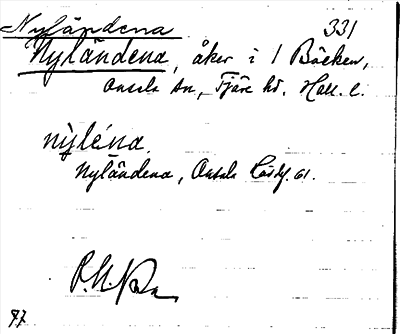 Nyländena 331
Nyländena, åker i 1 Bäcken,
Onsala sn, Fjäre hd. Hall. l.
nỳléna.
Nyländena, Onsala Lösdf. 61.
97